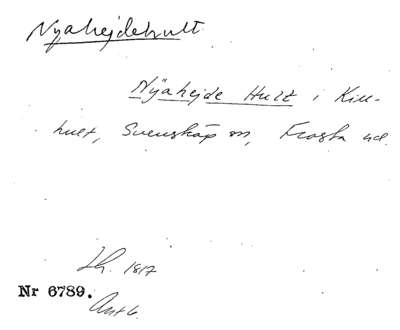 Nyahejdehult
Nÿahejde Hult i Kill-
hult, Svensköp sn, Frosta hd.
Lh. 1817
Nr 6789.